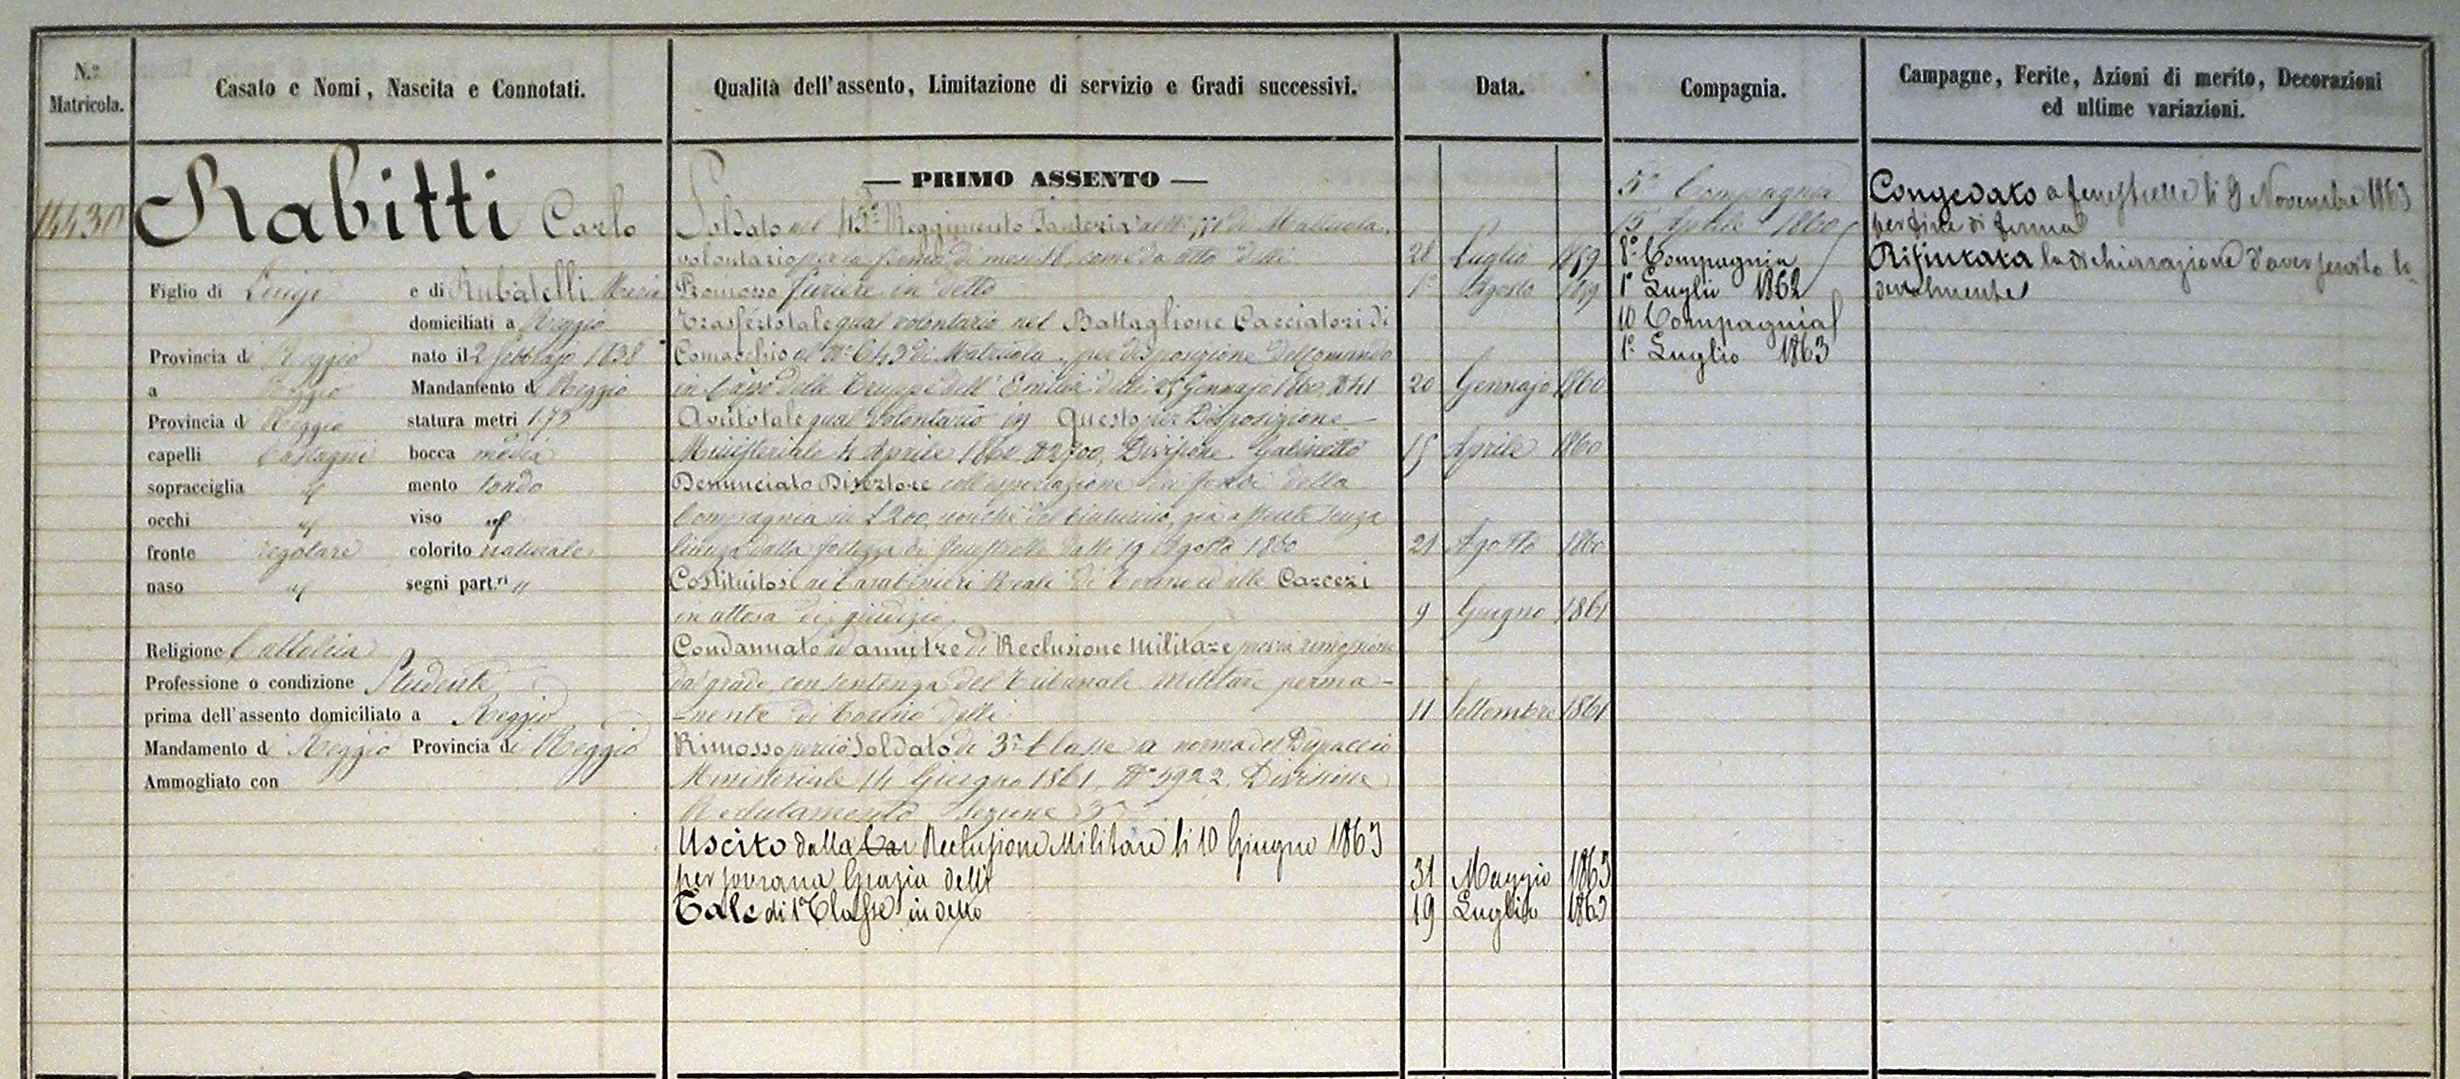 N.°
Matricola.
Casato e Nomi, Nascita e Connotati.
Qualità dell'assento, Limitazione di servizio e Gradi successivi.
Data.
Compagnia.
Campagne, Ferite, Azioni di merito, Decorazioni
ed ultime variazioni.
14430
Rabitti Carlo
Figlio di Luigi e di Rubatelli Maria
domiciliati a Reggio
Provincia di Reggio nato il 2 febbrajo 1838
a Reggio Mandamento di Reggio
Provincia di Reggio statura metri 1.75
capelli Castagni bocca media
sopracciglia id mento tondo
occhi id viso id
fronte regolare colorito naturale
naso id segni part.ri "
Religione Cattolica
Professione o condizione Studente
prima dell'assento domiciliato a Reggio
Mandamento di Reggio Provincia di Reggio
Ammogliato con
— PRIMO ASSENTO —
Soldato nel 45° Reggimento Fanteria al N° di Matricola
volontario per la ferma di mesi 18, come da atto delli 28 Luglio 1859
Promosso Furiere in detto 1° Agosto 1859
Trasferto tale qual volontario nel Battaglione Cacciatori di
Comacchio al N° 643 di Matricola, per disposizione del Comando
in Capo delle Truppe dell'Emilia delli 25 Gennajo 1860 20 Gennajo 1860
Avuto tale qual Volontario in Questo per Disposizione
Ministeriale 4 Aprile 1860 N° 2700, Divisione Gabinetto 15 Aprile 1860
Denunciato Disertore coll'esportazione dei fondi della
Compagnia in £ 200, nonchè del
licenza dalla fortezza di Fenestrelle dalli 19 Agosto 1860 21 Agosto 1860
Costituitosi ai Carabinieri Reali di Torino ed alle Carceri
in attesa di giudizio 9 Giugno 1861
Condannato ad anni tre di Reclusione Militare previa rimozione
dal grado, con sentenza del Tribunale Militare perma-
-nente di Torino delli 11 Settembre 1861
Rimosso perciò Soldato di 3ª Classe a norma del Dispaccio
Ministeriale 14 Giugno 1861, N° 5922, Divisione
Reclutamento Sezione 3ª
Uscito dalla Car Reclusione Militare li 10 Giugno 1863
per sovrana Grazia delli 31 Maggio 1863
Tale di 1ª Classe in detto 19 Luglio 1863
5ª Compagnia
15 Aprile 1860
8ª Compagnia
1° Luglio 1862
10 Compagnia
1° Luglio 1863
Congedato a Fenestrelle li 9 Novembre 1863
per fine di ferma
Rifiutata la dichiarazione d'aver servito lo-
devolmente